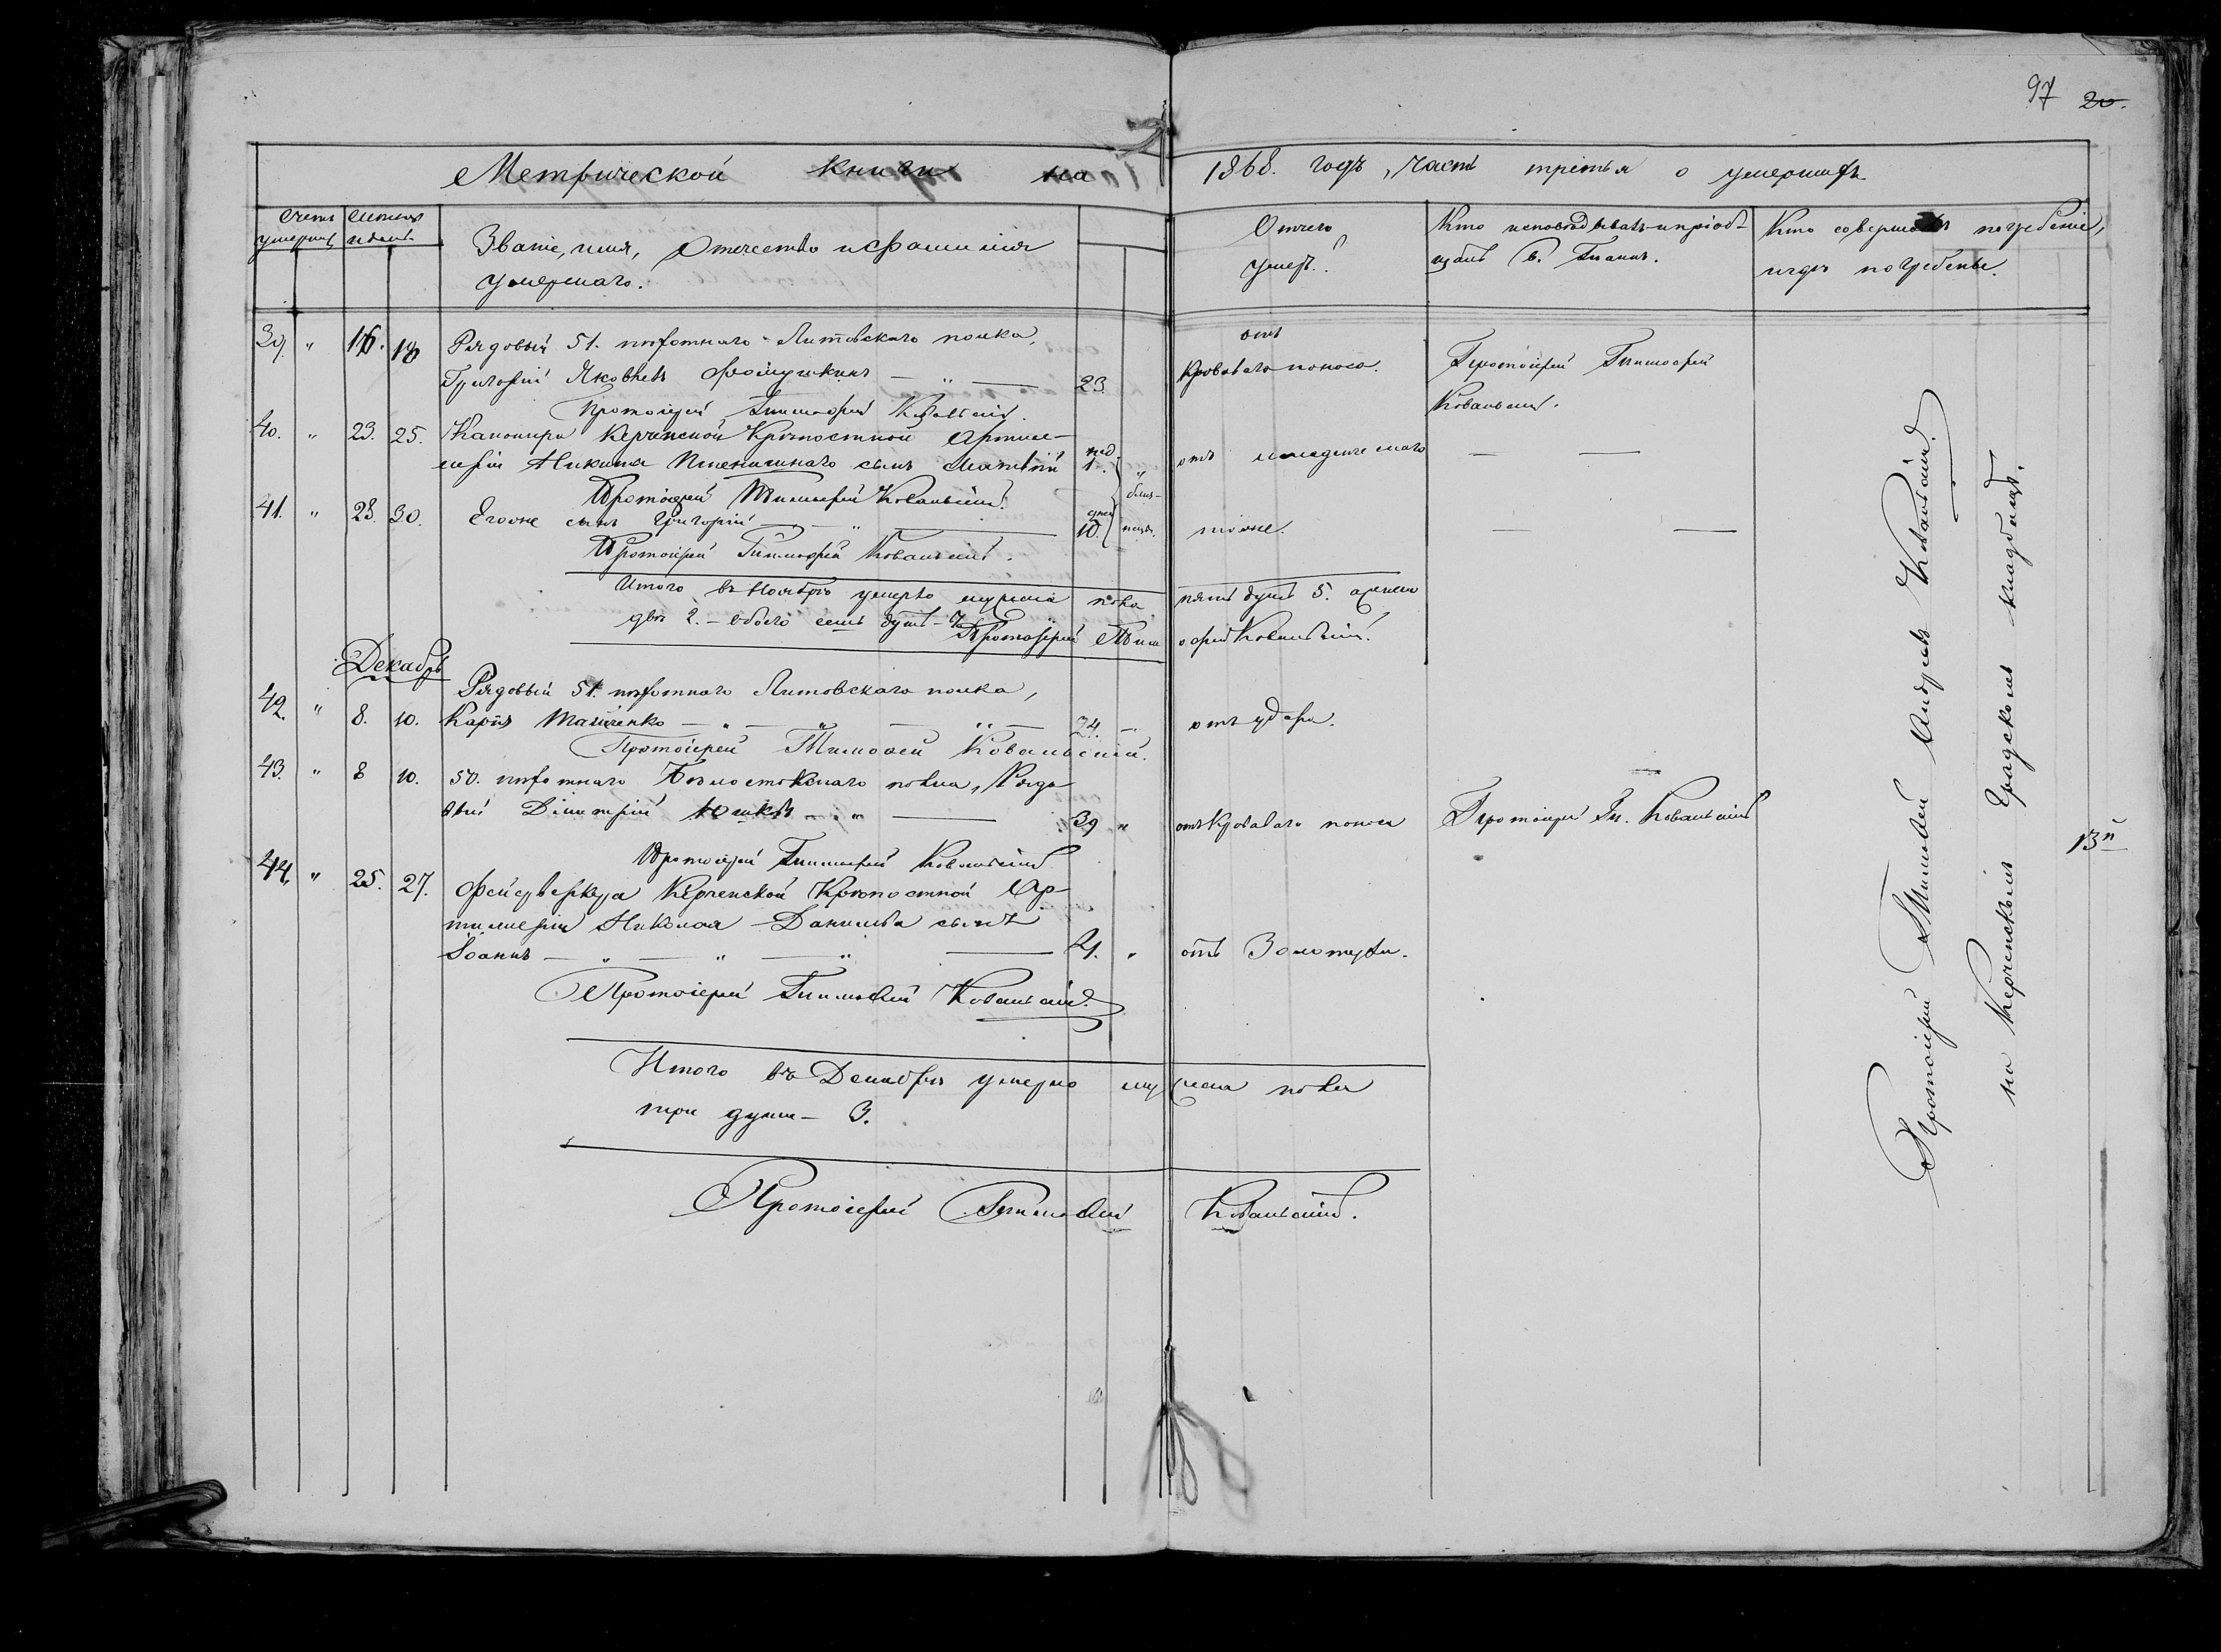 97 20.
Метрической книги на 1868. годъ, часть третья о умершихъ
Счетъ умершихъ
Мѣсяцъ и день
Званіе, имя, Отчество и фамилія умершаго.
Отчего умеръ.
Кто исповѣдывалъ и пріобщалъ Св. Таинъ.
Кто совершалъ погребеніе, и гдѣ погребены.
39. " 16. 18 Рядовый 51. пѣхотнаго Литовскаго полка, отъ
Григорій Яковлевъ — " — 23. кроваваго поноса. Протоіерей Тимофей
Ковальскій.
Протоіерей Тимофей Ковальскій.
40. " 23. 25. Канонира Керченской Крѣпостной Артил-
леріи Никиты Пшеничнаго сынъ Матвѣй нед. 1. " отъ младенческаго — —
Протоіерей Тимофей Ковальскій.
41. " 28. 30. Егоже сынъ Григорій — " — дней 10. близнецы. тоже. — —
Протоіерей Тимофей Ковальскій.
Итого въ Ноябрѣ умерло мужска пола пять душъ 5. женска
двѣ 2. – обоего семь душъ – 7. Протоіерей Тимофей Ковальскій.
Декабрь
42. " 8. 10. Рядовый 51. пѣхотнаго Литовскаго полка,
Карпъ — " — " — " — 24. — отъ удара.
Протоіерей Тимофей Ковальскій.
43. " 8 10. 50. пѣхотнаго Бѣлостокскаго полка, Рядо-
вый Димитрій Юшковъ — " — 39 " отъ Кроваваго поноса Протоіерей Ти. Ковальскій
Протоіерей Тимофей Ковальскій
44. " 25. 27. Фейерверкера Керченской Крѣпостной Ар-
тиллеріи Николая Данилова сынъ
Іоаннъ — " — " — " — " отъ Золотухи.
Протоіерей Тимофей Ковальскій.
Итого въ Декабрѣ умерло мужска пола
три души – 3.
Протоіерей Тимофей Ковальскій.
Протоіерей Тимофей Андреевъ Ковальскій.
на Керченскомъ Градскомъ кладбищѣ.